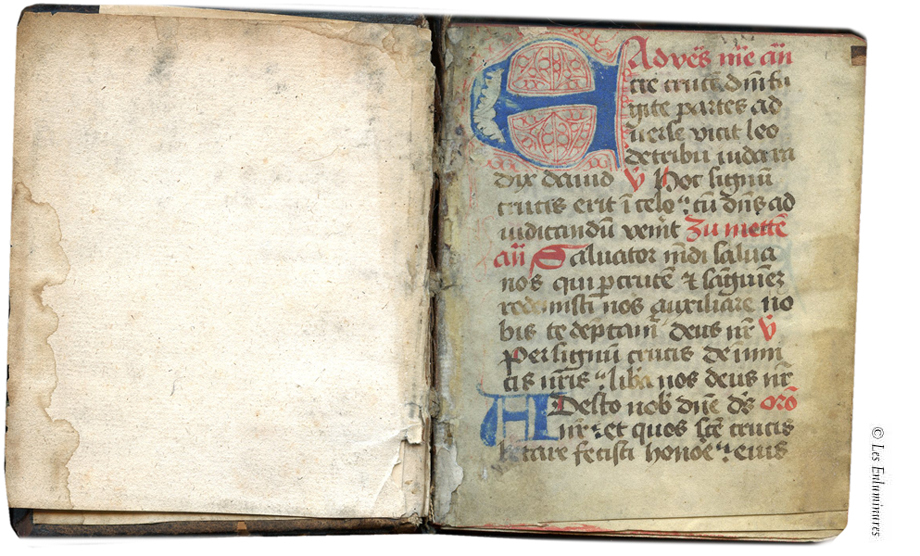 Ad vēs̄ m̄e an̄
E cce crucē dn̄i fu
gite partes ad
verse vicit leo
de tribu iuda ra
dix dauid v̄ Hoc signū
crucis erit ī celo : cū dn̄s ad
iudicandū venit Zu metten̄
an̄ Saluator mūdi salua
nos qui p crucē & sāguinē
redemisti nos auxiliare no
bis te dep̄camur deus nr̄ v̄
Per signū crucis de inimi
cis nr̄is : lib̄a nos deus nr̄
ADesto nob̄ dn̄e ds̄ orō
nr̄ : et quos sc̄e crucis
letare fecisti honōe : eius
© Les Enluminures